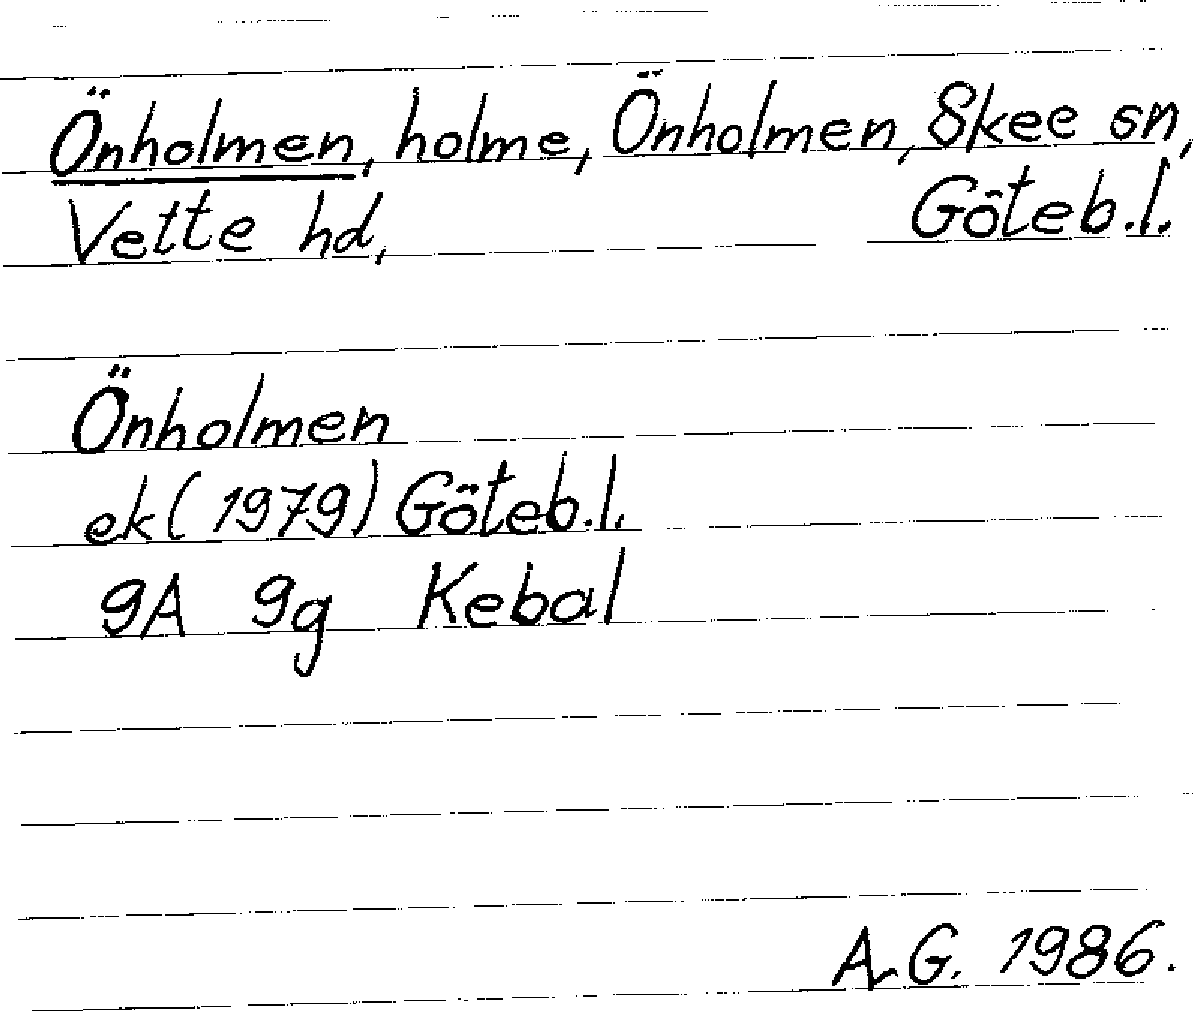 Önholmen, holme, Önholmen, Skee sn,
Vette hd, Göteb.l.
Önholmen
ek (1979) Göteb.l.
9A 9g Kebal
A.G. 1986.